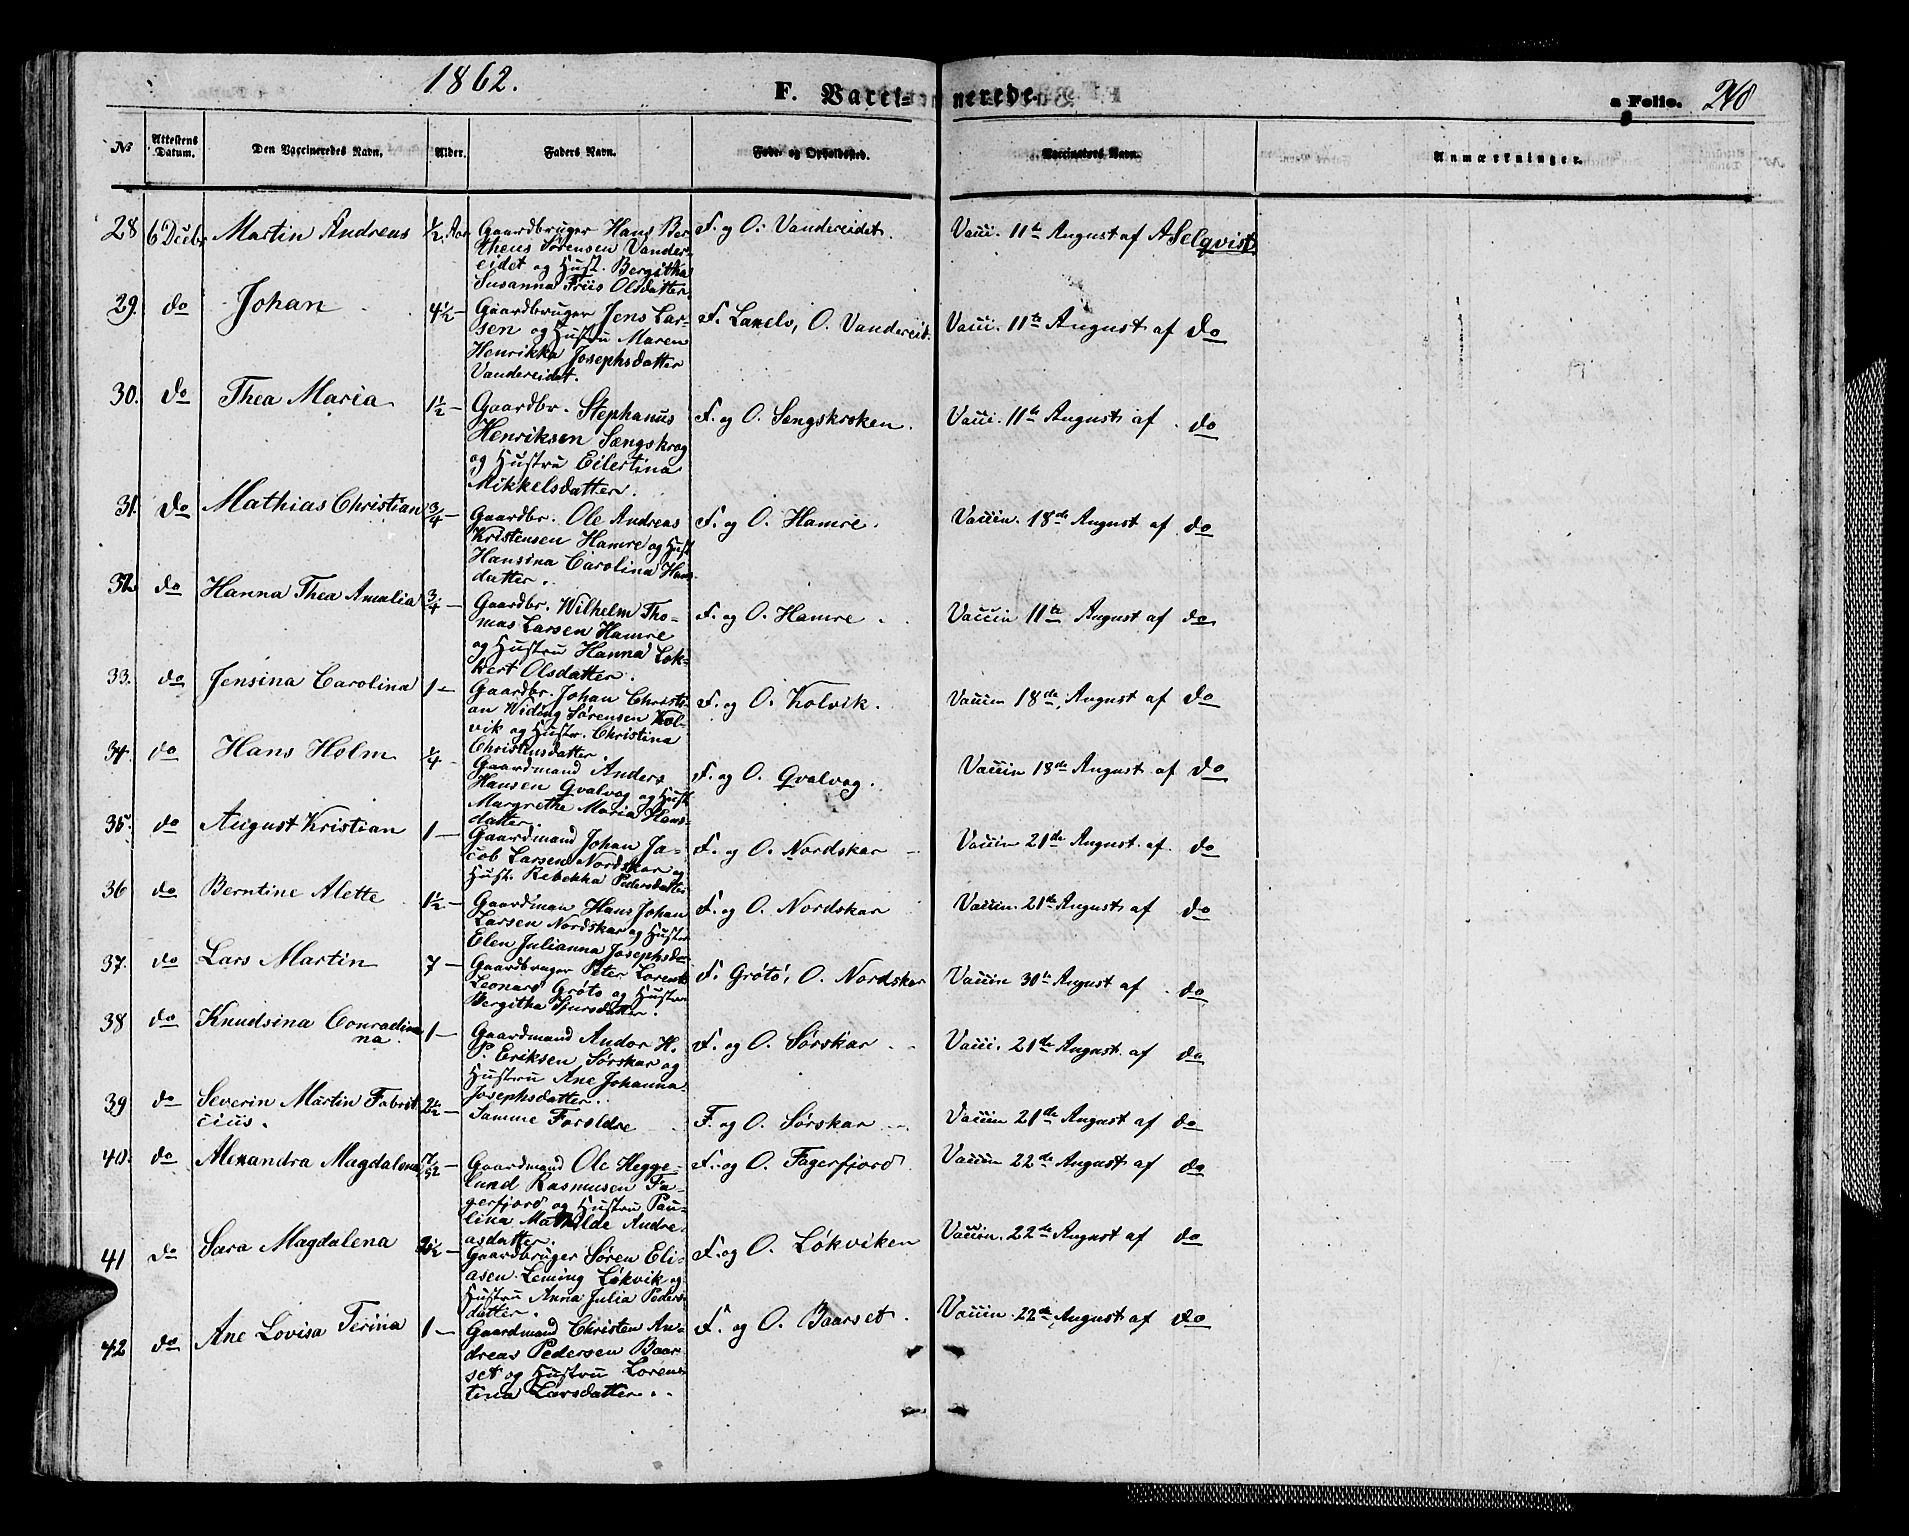 1862.
F. Vacci- nerede.
a Folio. 248
No
Attestens Datum.
Den Vaccineredes Navn.
Alder.
Faders Navn.
Føde- og Opholdssted.
Vaccinators Navn.
Anmærkninger.
28 6 Decbr Martin Andreas ½ Aar Gaardbruger Hans Ber- F. og O. Vandereidet. Vacci. 11te August af A Selqvist
theus Sørensen Vander-
eidet og Hust. Bergitha
Susanna Friis Olsdatter.
29. do Johan 4½ — Gaardbruger Jens Lar- F. Lanels, O. Vandereid. Vacci. 11te August af do
sen og Hustru Maren
Henrikka Josephsdatter
Vandereidet.
30. do Thea Maria 1½ — Gaardbr. Stephanus F. og O. Sengskroken. Vacci. 11te August af do
Henriksen Sængskrog
og Hustru Eilertina
Mikkelsdatter.
31. do Mathias Christian ¾ — Gaardbr. Ole Andreas F. og O. Hamre. Vaccin. 18de August af do
Kristensen Hamre og Hust
Hansina Carolina Hans
datter.
32 do Hanna Thea Amalia ¾ — Gaardbr. Wilhelm Tho- F. og O. Hamre. Vaccin 11te August af do
mas Larsen Hamre
og Hustru Hanna Lok-
kert Olsdatter.
33. do Jensina Carolina 1 — Gaardbr. Johan Christi- F. og O. Kolvik. Vaccin 18de August af do
an Widing Sørensen Kol-
vik og Hustr. Christina
Christensdatter
34. do Hans Holm ¼ — Gaardmand Anders F. og O. Qvalvag. Vaccin 18de August af do
Hansen Qvalvog og Hust
Margrethe Maria Hans-
datter.
35. do August Kristian 1 — Gaardmand Johan Ja- F. og O. Nordskar — Vaccin 21de August. af do
cob Larsen Nordskar og
Hust. Rebekka Pedersdatter
36 do Berntine Alette 1½ — Gaardman Hans Johan F. og O. Nordskar Vaccin. 21de August af do
Larsen Nordskar og Hustr
Elen Julianna Josephsda-
37. do Lars Martin 7 — Gaardbruger Peter Lorents F. Grøtø, O. Nordskar Vaccin 30te August af do
Leonard Grøtø og Hustru
Bergitha Sjursdatter.
38 do Knudsina Conradina 1 — Gaardmand Andor H. F. og O. Sørskar Vacci. 21de August af do
na.
P. Eriksen Sørskar og
Hustru Ane Johanna
Josephsdatter.
39 do Severin Martin Fabrit 2½ — Samme Forældre F. og O. Sørskar Vaccin 21de August af do
cius.
40. do Alexandra Magdalena 7/52 — Gaardmand Ole Hegge- F. og O. Fagerfjord Vaccin 22de August af do
lund Rasmusen Fa-
gerfjord og Hustru Pau-
lina Mathilde Andre-
asdatter.
41 do Sara Magdalena 2½ — Gaardbruger Søren Eli- F. og O. Løkviken Vaccin. 22de August af do
asen Leming Løkvik og
Hustru Anna Julia Peders-
datter.
42 do Ane Lovisa Terina 1 — Gaardmand Christen An- F. og O. Baarset. Vaccin. 22de August af do
dreas Pedersen Baar
set og Hustru Loren-
tina Larsdatter.